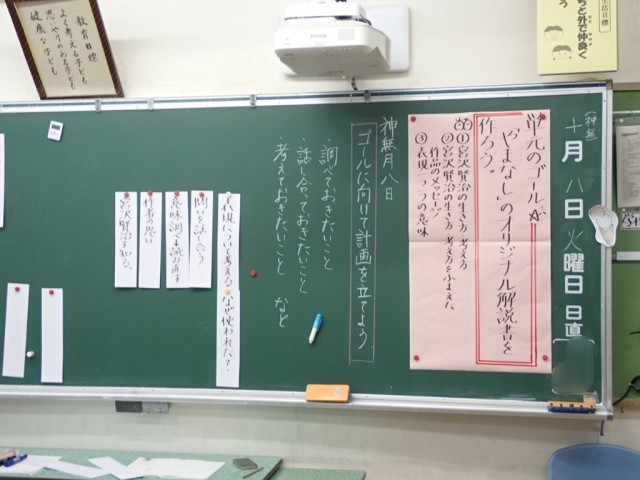 教育目標
よく考える子ども
思いやりのある子ども
健康な子ども
EPSON
生活目標
ちと外で仲良く
う
(神無)
十月八日火曜日日直
単元のゴール☆
“やまなし”のオリジナル解説書を
作ろう。
①宮沢賢治の生き方・考え方
②宮沢賢治の生き方・考え方をふまえた
作品のメッセージ
③表現一つ一つの意味
神無月八日
ゴールに向けて計画を立てよう
・調べておきたいこと
・話し合っておきたいこと
・考えておきたいこと など
表現について考える なぜ使われた?
問いを話し合う
意味調べ・読み直す
作者の思い
宮沢賢治を知る。